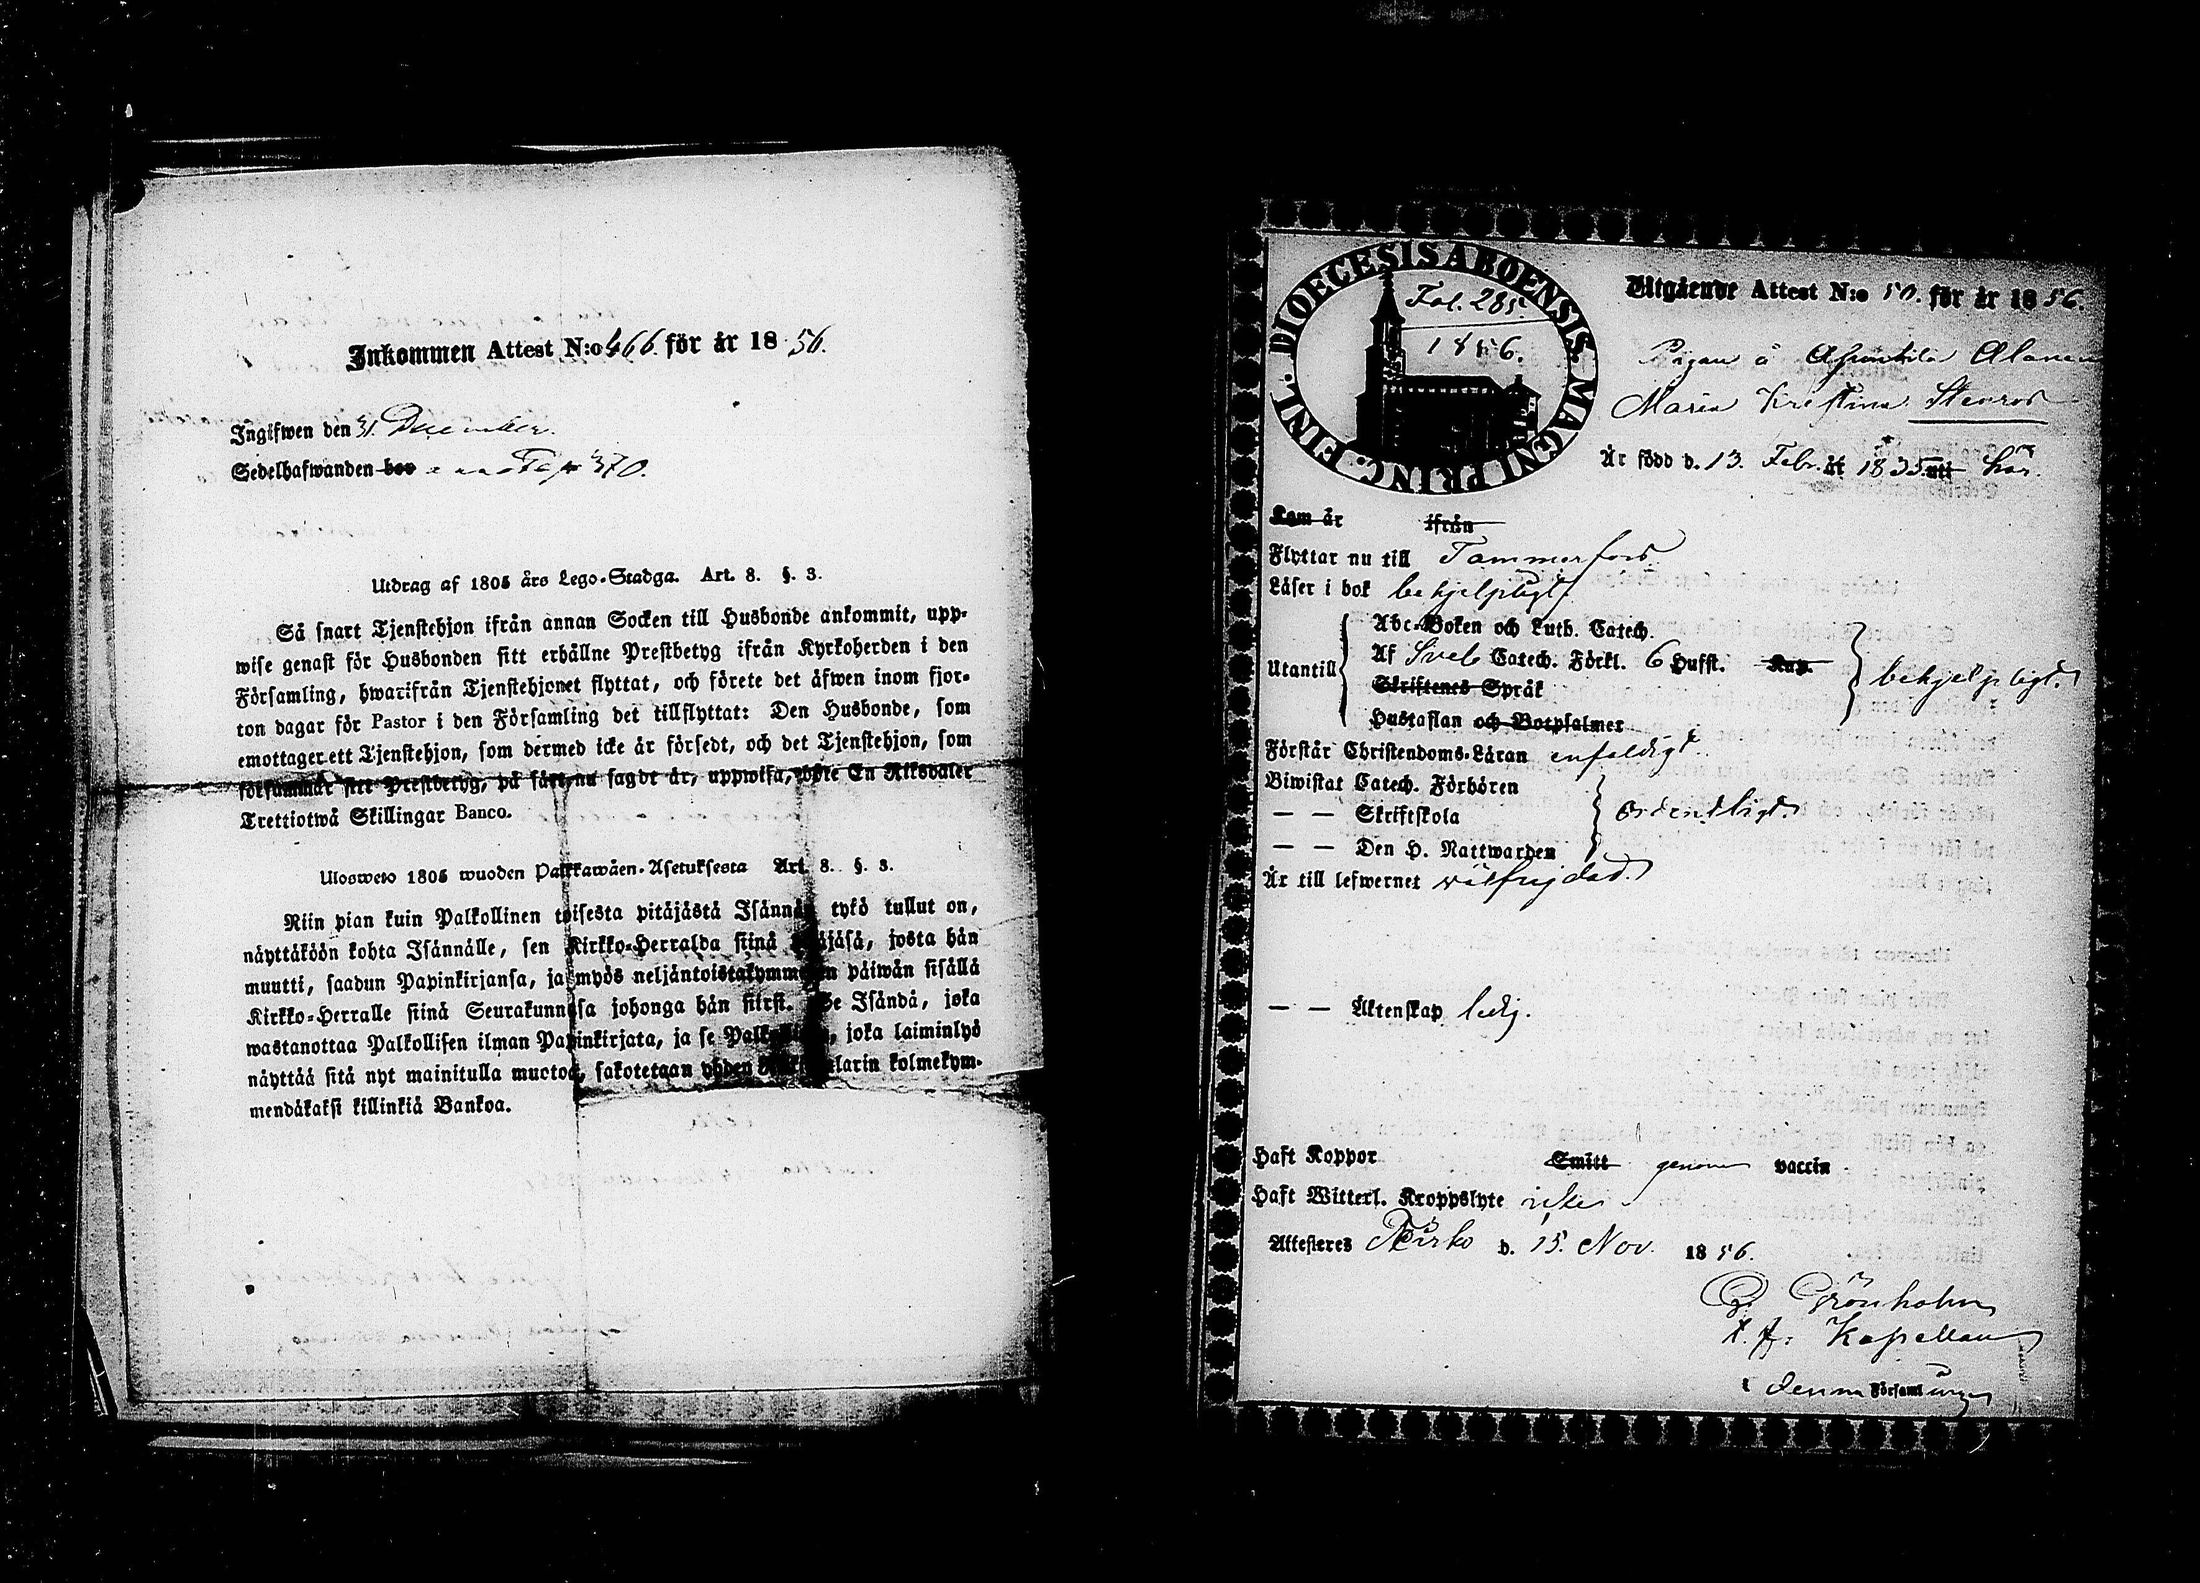 Inkommen Attest N:o 466. för år 18 56.
Ingifwen den 31. December.
Sedelhafwanden bor
Utdrag af 1805 års Lego-Stadga. Art. 8. §. 3.
Så snart Tjenstehjon ifrån annan Socken till Husbonde ankommit, upp-
wise genast för Husbonden sitt erhållne Prestbetyg ifrån Kyrkoherden i den
Församling, hwarifrån Tjenstehjonet flyttat, och förete det äfwen inom fjor-
ton dagar för Pastor i den Församling det tillflyttat: Den Husbonde, som
emottager ett Tjenstehjon, som dermed icke är försedt, och det Tjenstehjon, som
försummar sitt Prestbetyg, på sätt nu sagdt är, uppwisa, böte En Riksdaler
Trettiotwå Skillingar Banco.
Ulosweto 1805 wuoden Palkkawäen-Asetuksesta Art. 8. §. 3.
Niin pian kuin Palkollinen toisesta pitäjästä Isännän tykö tullut on,
näyttäköön kohta Isännälle, sen Kirkko-Herralda siinä pitäjäsä, josta hän
muutti, saadun Papinkirjansa, ja myös neljäntoistakymmenen päiwän sisällä
Kirkko-Herralle siinä Seurakunnasa johonga hän siirst. Se Isändä, joka
wastanottaa Palkollisen ilman Papinkirjata, ja se Palkollinen, joka laiminlyö
näyttää sitä nyt mainitulla muotoa, sakotetaan yhden Riksdalarin kolmekym-
mendäkaksi killinkiä Bankoa.
DIOECESIS ABOENSIS. MAGNI PRINC. FINL.
Fol. 285.
1856.
Utgående Attest N:o 50. för år 18 56.
Pigan å Alanen
Maria Kristina Stenros
Är född d. 13. Febr. år 1835. uti här.
Kom år ifrån
Flyttar nu till Tammerfors
Läser i bok behjelpligt.
Utantill
Abc-Boken och Luth. Catech.
Af Sveb Catech. Förkl. 6 Hufst. Kap.
Skriftenes Språk
Hustaflan och Botpsalmer
behjelpligt.
Förstår Christendoms-Läran enfaldigt.
Biwistat Catech. Förhören
— — Skriftskola
— — Den H. Nattwarden
ordentligt.
Är till lefwernet välfrejdad.
— — Äktenskap ledig.
Haft Koppor Smitt genom vaccin
Haft Witterl. Kroppslyte icke
Attesteres d. 15. Nov. 18 56.
Grönholm
t. f. Kapellan
i denna Församlingen